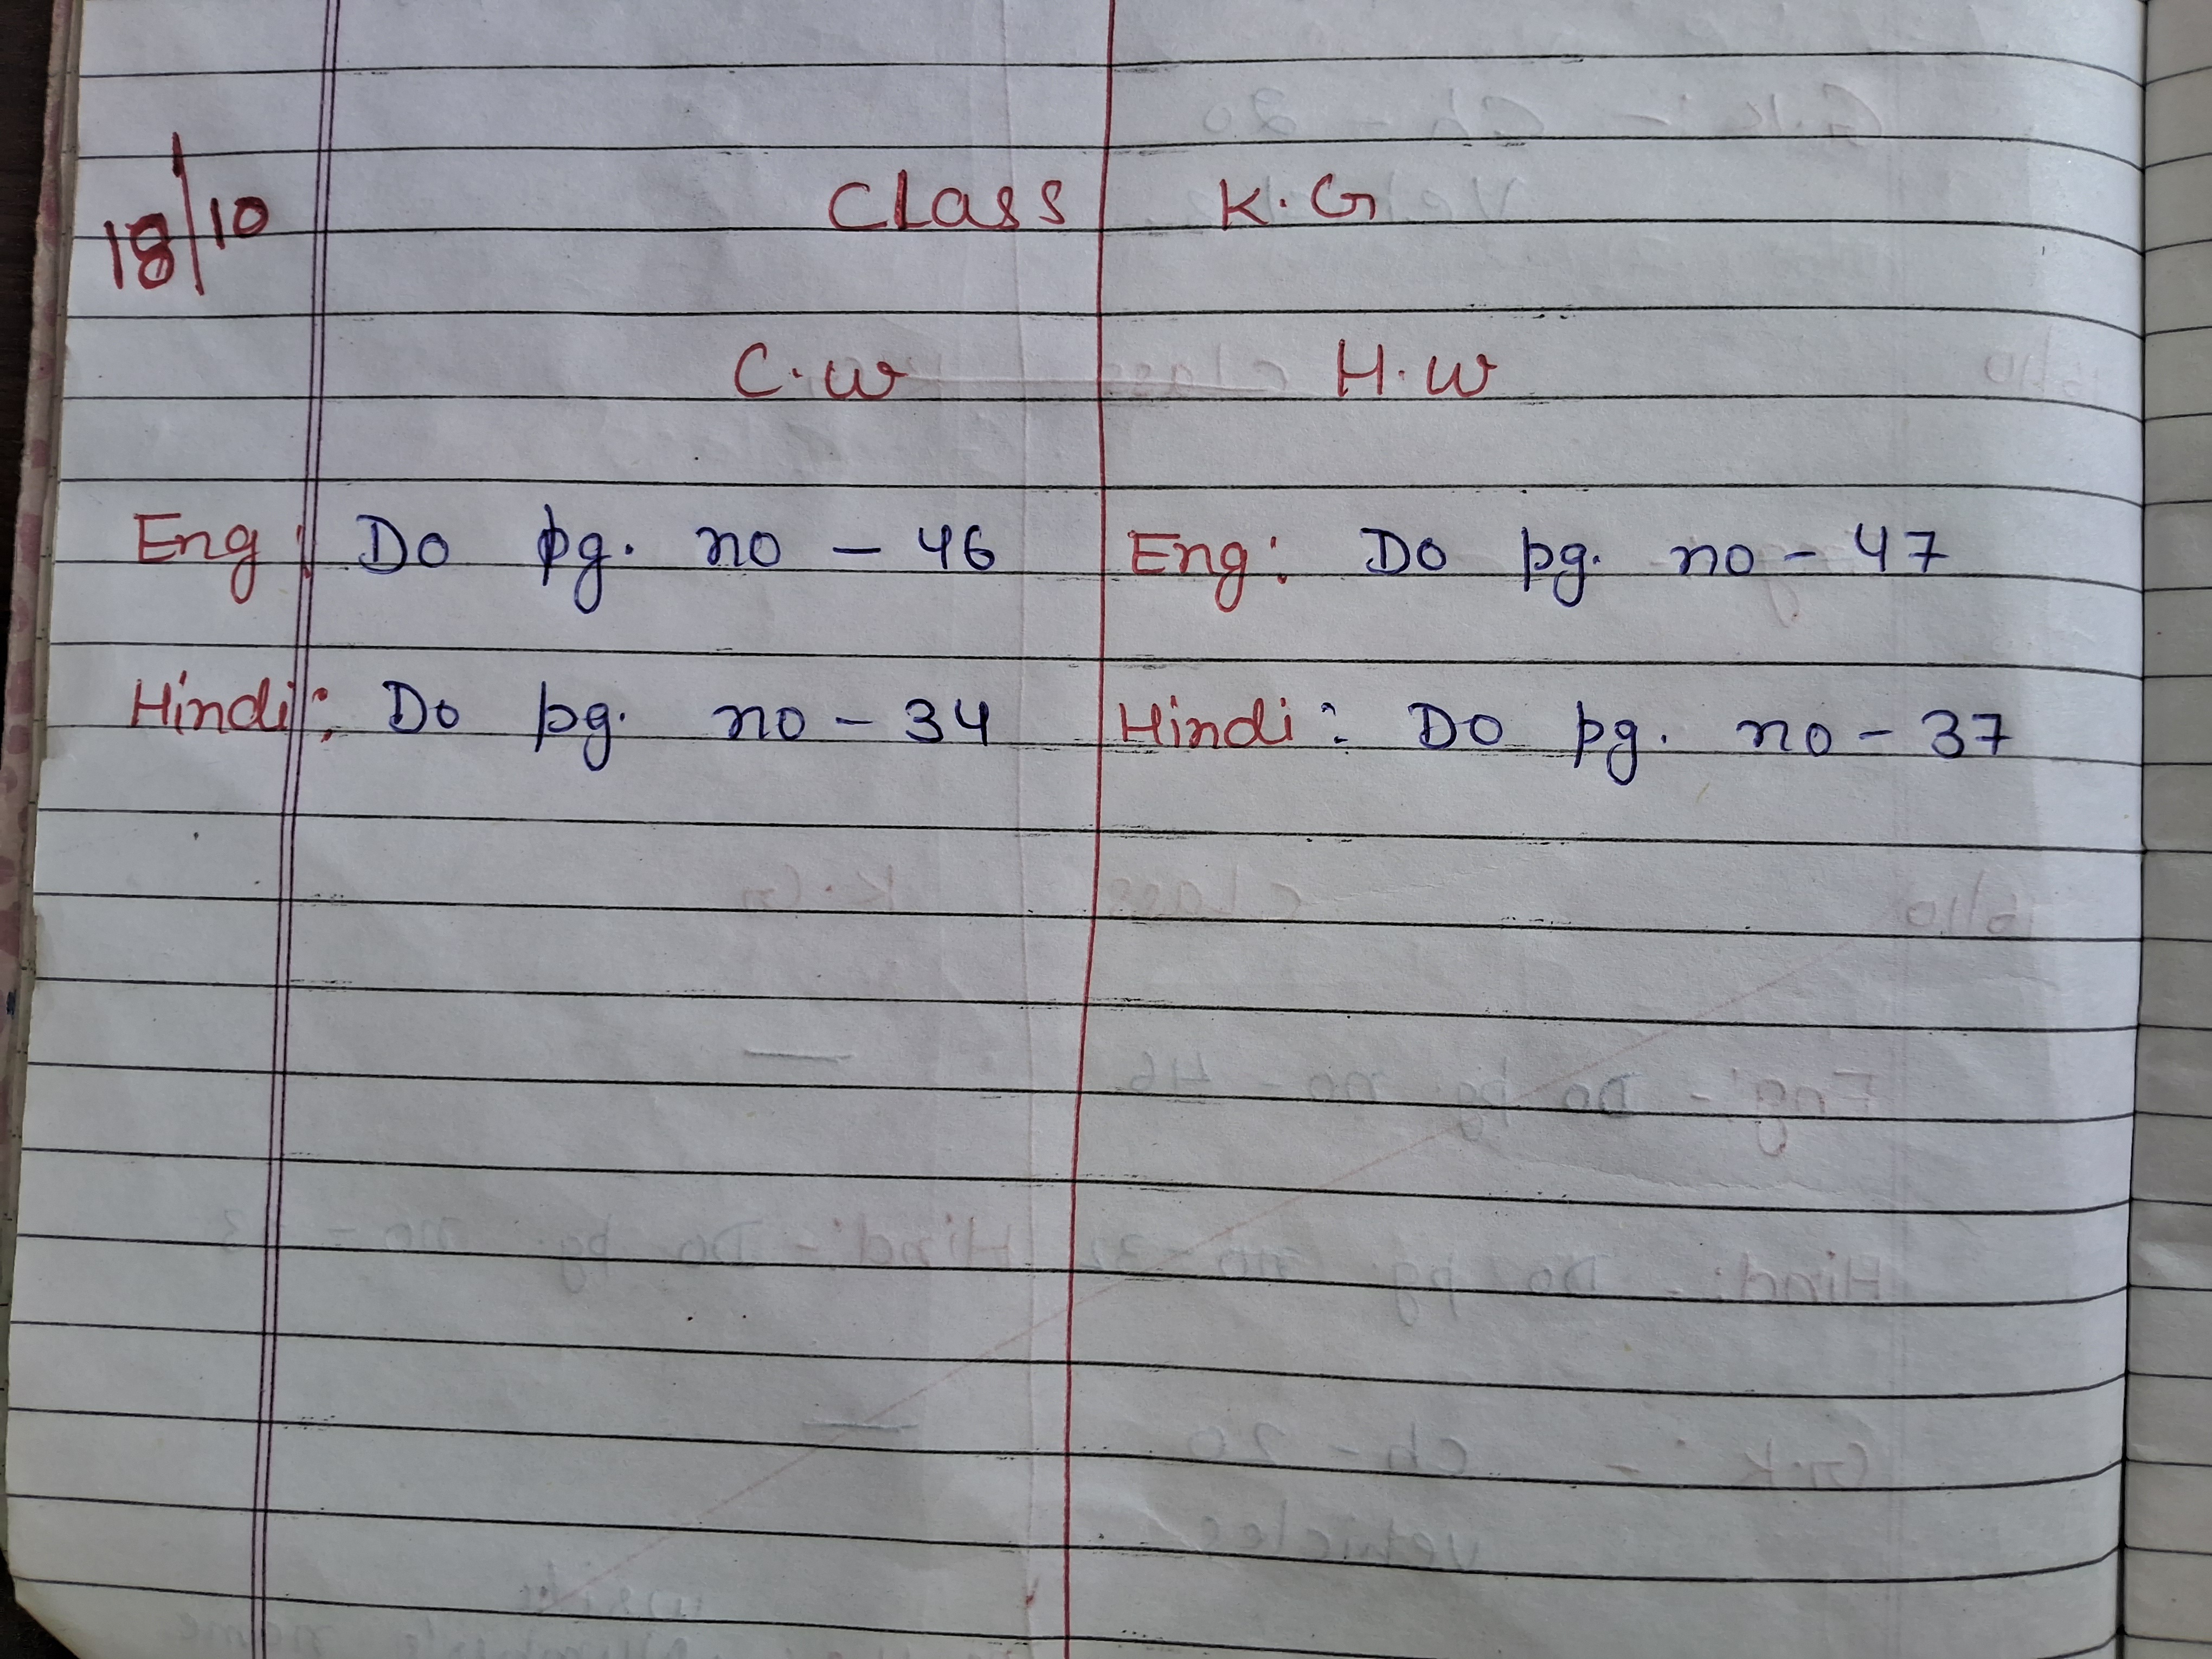 18/10
Class K.G
C.W H.W
Eng: Do pg. no - 46 Eng: Do pg. no - 47
Hindi: Do pg. no - 34 Hindi: Do pg. no - 37